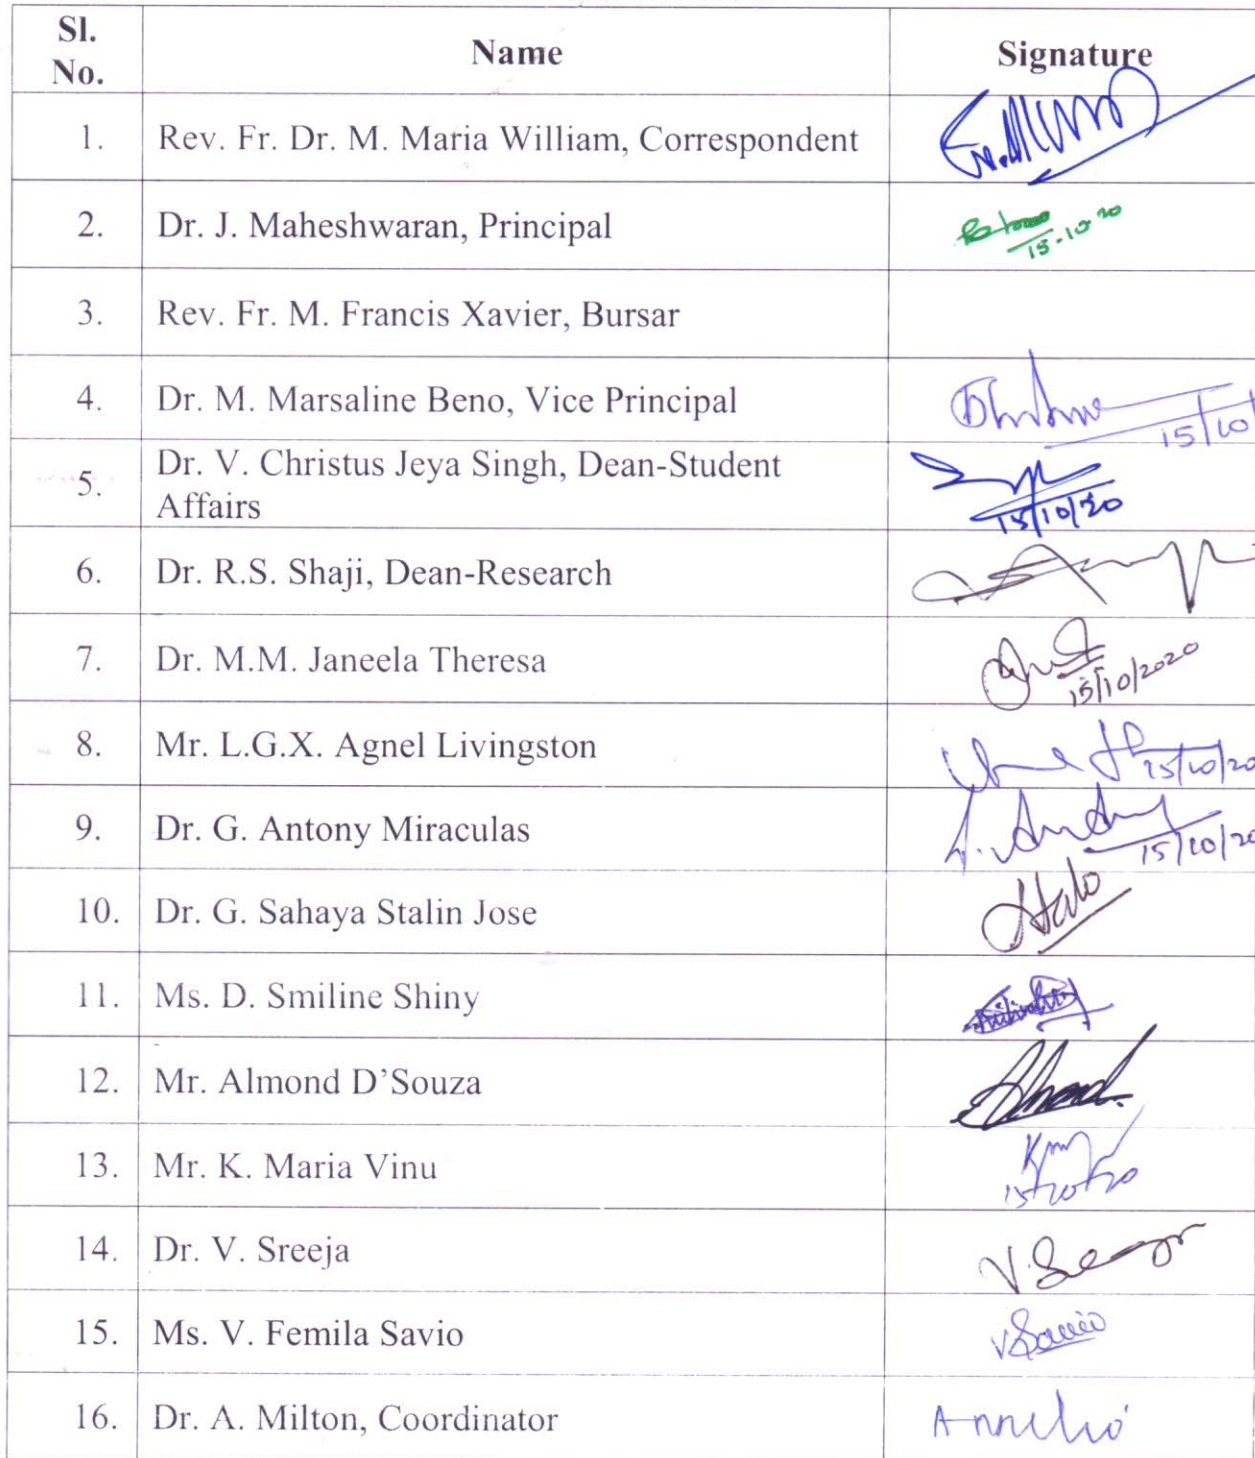 Sl. No. Name Signature
1. Rev. Fr. Dr. M. Maria William, Correspondent
2. Dr. J. Maheshwaran, Principal 15-10-20
3. Rev. Fr. M. Francis Xavier, Bursar
4. Dr. M. Marsaline Beno, Vice Principal 15/10/
5. Dr. V. Christus Jeya Singh, Dean-Student
Affairs 15/10/20
6. Dr. R.S. Shaji, Dean-Research
7. Dr. M.M. Janeela Theresa 15/10/2020
8. Mr. L.G.X. Agnel Livingston 15/10/20
9. Dr. G. Antony Miraculas 15/10/20
10. Dr. G. Sahaya Stalin Jose
11. Ms. D. Smiline Shiny
12. Mr. Almond D'Souza
13. Mr. K. Maria Vinu 15/10/20
14. Dr. V. Sreeja
15. Ms. V. Femila Savio V Savio
16. Dr. A. Milton, Coordinator